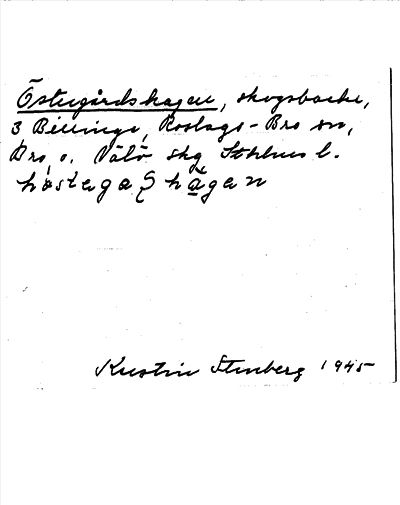 Östergårdshagen, skogsbacke,
3 Billinge, Roslags-Bro sn,
Bro o. Vätö skg Sthlms l.
hagen
Kerstin Stenberg 1945